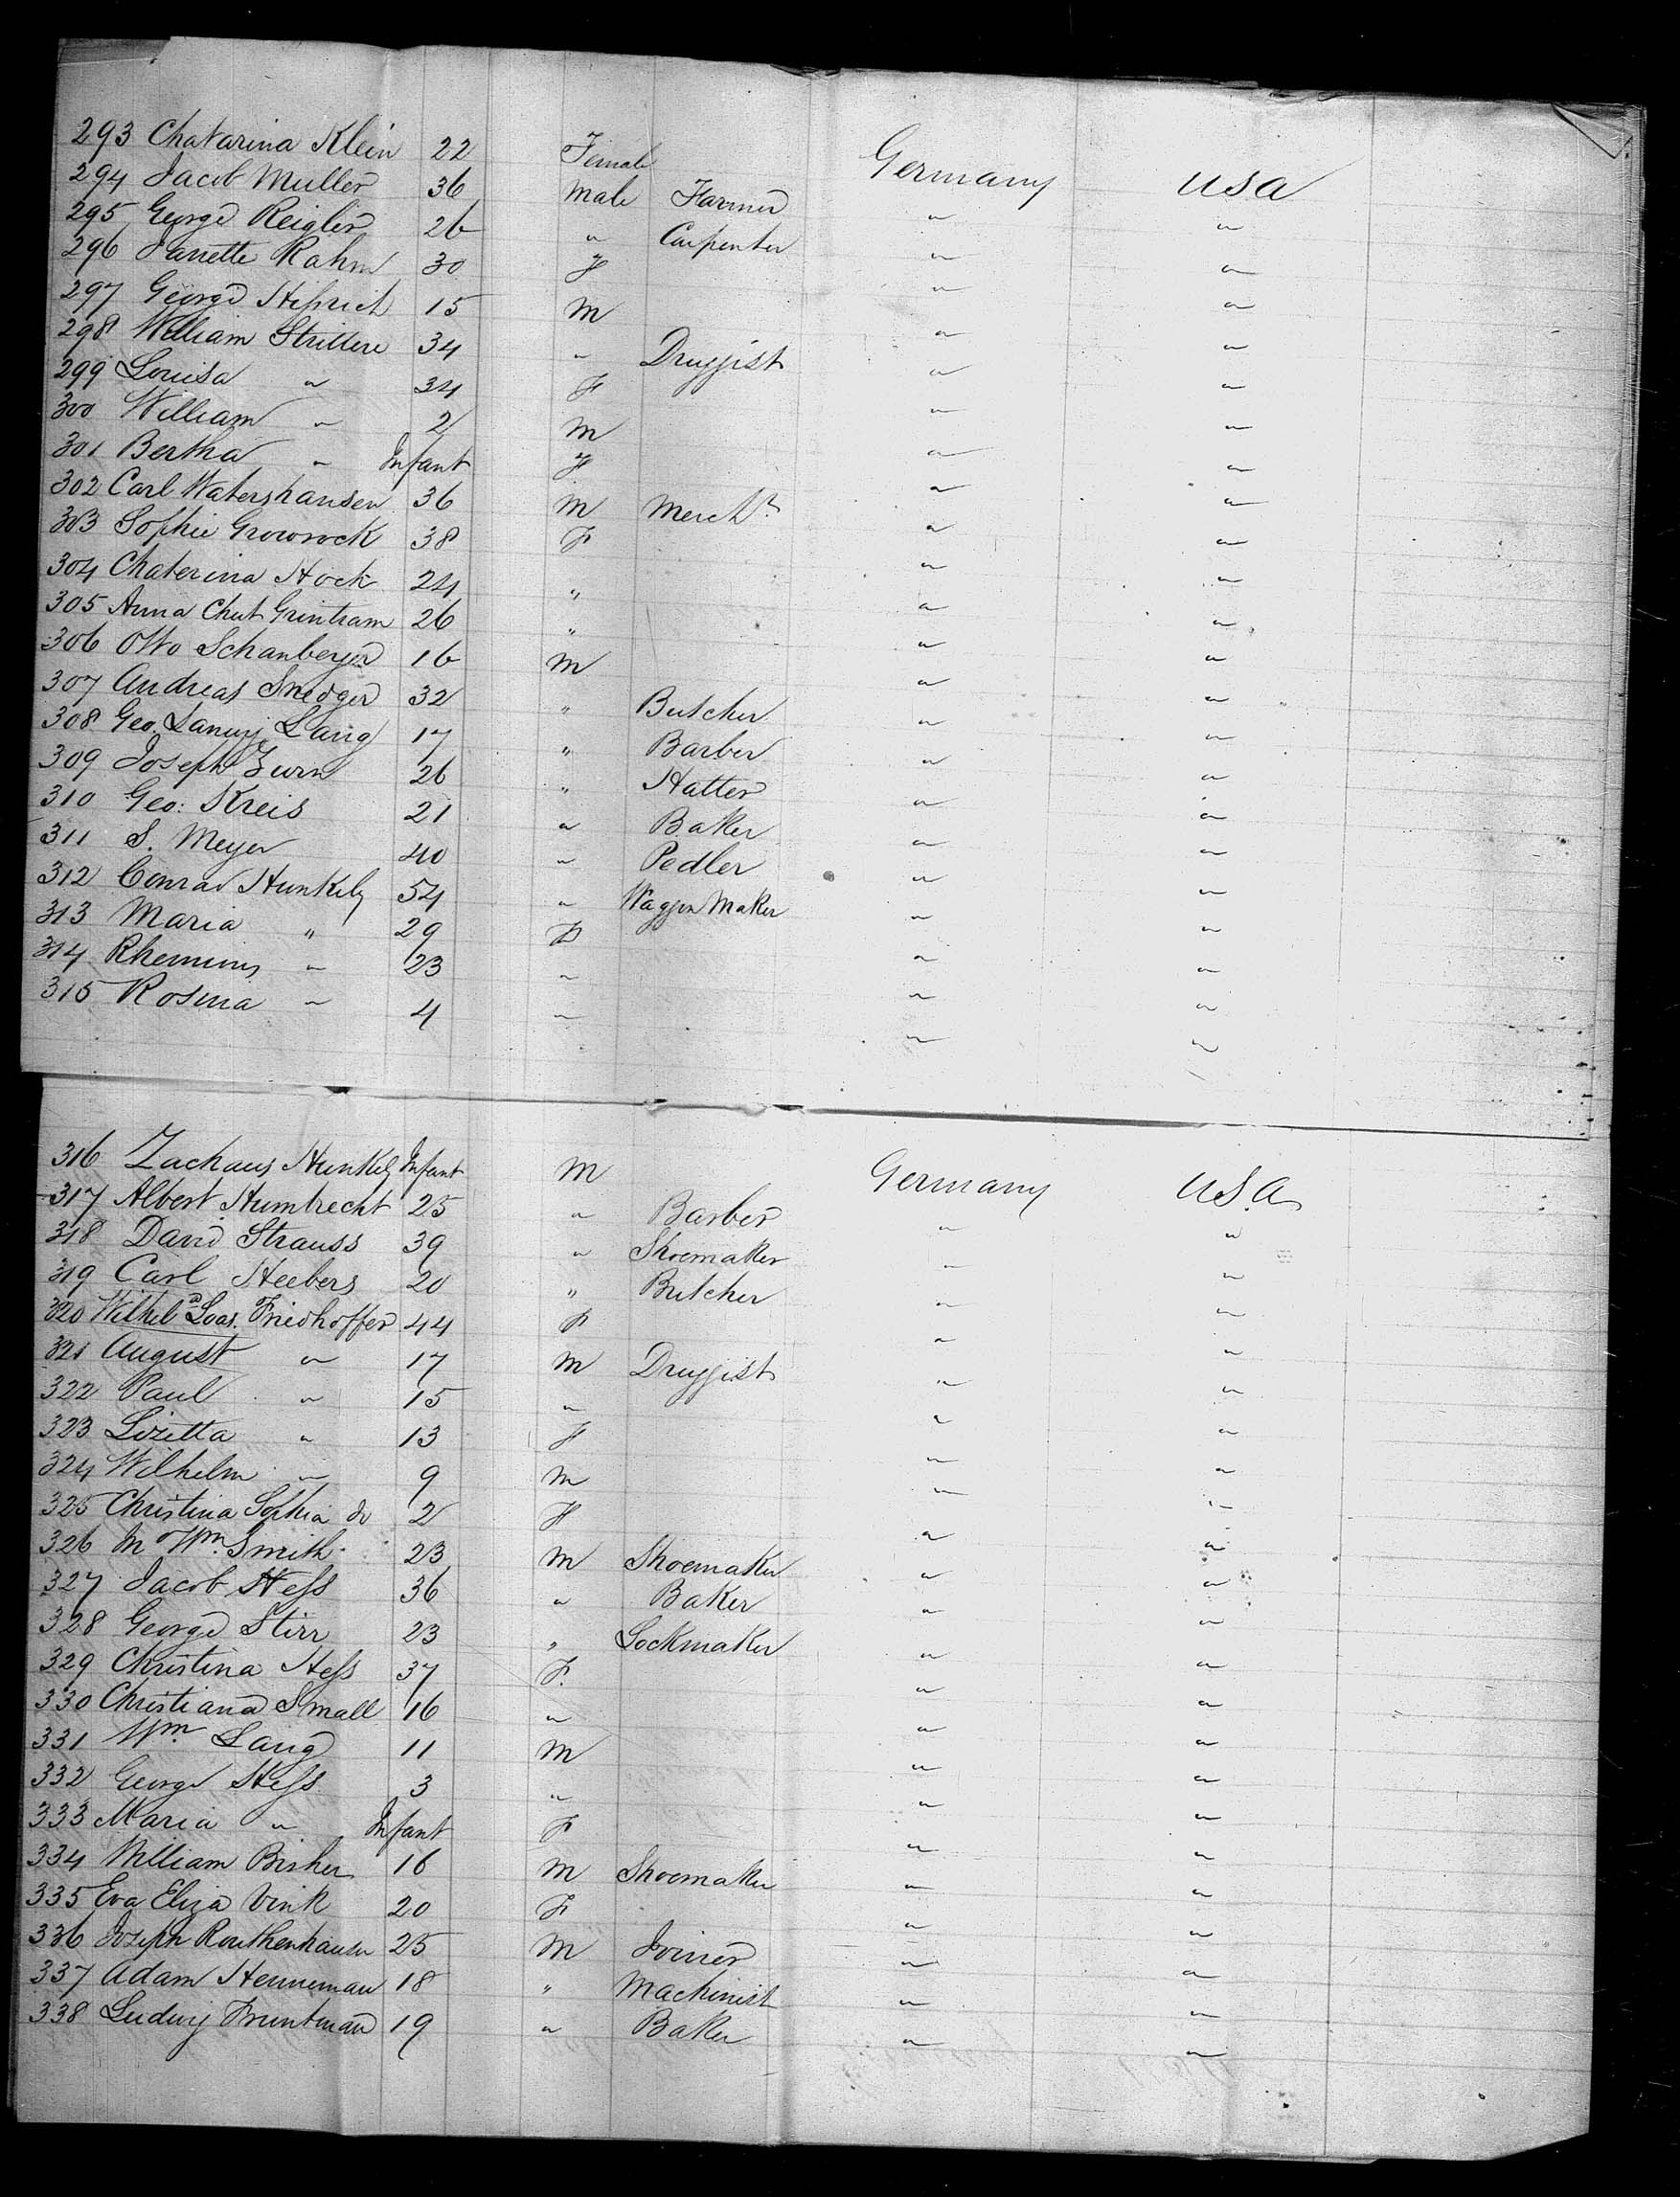 293 Chatarina Klein 22 Female Germany USA
294 Jacob Muller 36 Male Farmer " "
295 George Reigler 26 " Carpenter " "
296 Janette Rahm 30 F " "
297 George 15 M " "
298 William Strittere 34 " Druggist " "
299 Louisa " 34 F " "
300 William " 2 M " "
301 Bertha " Infant F " "
302 Carl Watershausen 36 M Mercht " "
303 Sophie 38 F " "
304 Chaterina Hock 24 " " "
305 Anna Chat Grintram 26 " " "
306 Otto Schanberger 16 M " "
307 Andreas 32 " Butcher " "
308 Geo. Lang 17 " Barber " "
309 Joseph Zurn 26 " Hatter " "
310 Geo: Kreis 21 " Baker " "
311 S. Meyer 40 " Pedler " "
312 Conrad Hunkely 54 " Waggon Maker " "
313 Maria " 29 F " "
314 " 23 " " "
315 Rosina " 4 " " "
316 Zachaus Hunkely Infant M Germany USA
317 Albert Humbrecht 25 " Barber " "
318 David Strauss 39 " Shoemaker " "
319 Carl Heebers 20 " Butcher " "
320 Friedhoffer 44 F " "
321 August " 17 M Druggist " "
322 Paul " 15 " " "
323 Lizetta " 13 F " "
324 Wilhelm " 9 M " "
325 Christina Sophia do 2 F " "
326 M Wm. Smith 23 M Shoemaker " "
327 Jacob Hess 36 " Baker " "
328 George Stirr 23 " Lockmaker " "
329 Christina Hess 37 F. " "
330 Christiana Small 16 " " "
331 Wm. Lang 11 M " "
332 George Hess 3 " " "
333 Maria " Infant F " "
334 William Bisher 16 M Shoemaker " "
335 Eva Eliza Vink 20 F " "
336 Joseph Routhenhauser 25 M Joiner " "
337 Adam Henneman 18 " Machinist " "
338 Ludwig Bruntman 19 " Baker " "